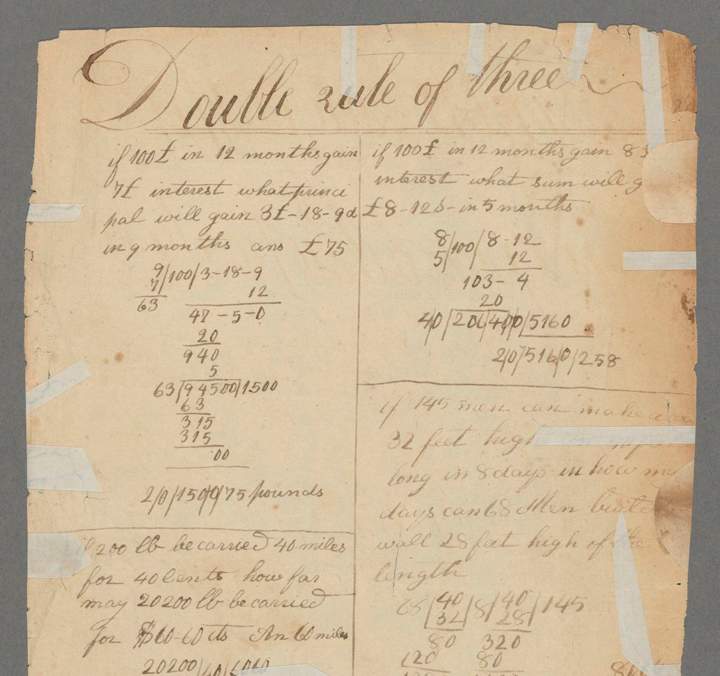 Double rule of three
if 100£ in 12 months gain
7£ interest what princi
pal will gain 3£-18-9d
in 9 months ans £75
9/100/3-18-9
7/ 12
63 47-5-0
20
940
5
63/94500/1500
63
315
315
00
2/0/150/0/75 pounds
if 100£ in 12 months gain 8
interest what sum will g
£8-12S-in 5 months
8/100/8-12
5/ 12
103-4
20
4/0/206/400/5160
2/0/516/0/258
200 lb be carried 40 miles
for 40 Cents how far
may 20200 lb be carried
for $60-60 cts An 60 miles
20200/40/6060
if 145 men can make a
32 feet high
long in 8 days in how m
days can 68 Men
wall 28 feet high of the
length
68/40/8/40/145
32 28
80 320
120 80